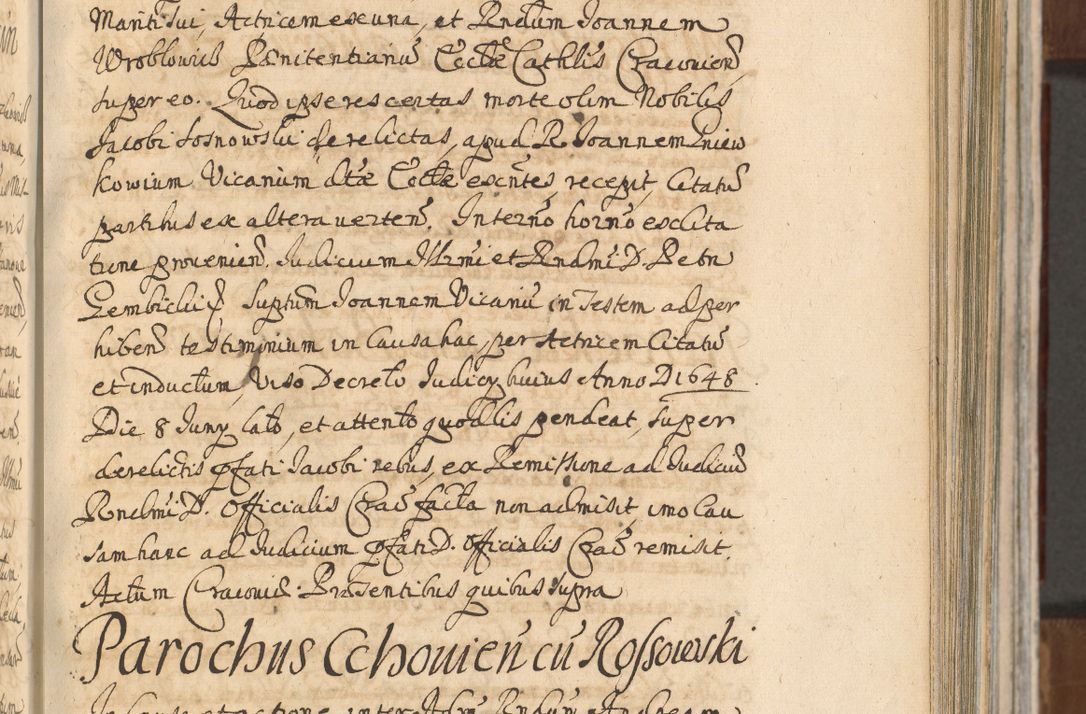 Mariti sui, Actricem ex una, et Rndum Joannem
Wroblowiis Pænitentianū Eccłæ Cathlis Cracovien̄
super eo. Quod ipse res certas morte olim Nobilis
Jacobi Sosnowski derelictas, apud R. Joannem Zniew
kowium Vicarium dtæ Eccłæ exñtes, recepit, Citatū
partibus ex altera verten̄. Interno horno ex cita
tione provenien̄. Judicium Illrmi et Rndmi D. Petri
Gembicki Suptum Joannem Vicariū in Testem ad per
hiben̄ testimonium in Causa hac, per Actricem Citatū
et inductum, Viso Decreto Judicij huius Anno D 1648
Die 8 Juny lato, et attento quod lis pendeat, super
derelictis pfati Jacobi rebus, ex Remissione ad Judiciū
Rndmi D. Officialis Crac̄ facta non admisit, imo Cau
sam hanc ad Judicium pfati D. Officialis Crac̄ remisit.
Actum Cracoviæ. Præsentibus quibus supra
Parochus Cchovien̄ cū Rossowski
In causa et actione inter Adm̄ Rndum Andream